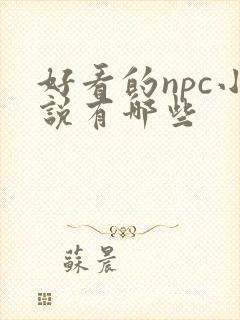 好看的npc小
說有哪些
蘇晨